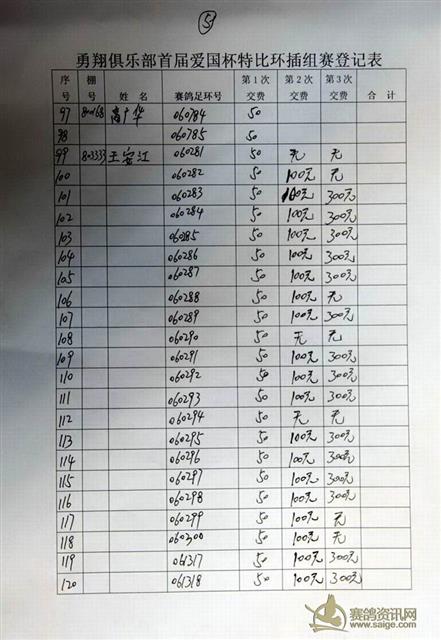 5
勇翔俱乐部首届爱国杯特比环插组赛登记表
序号 棚号 姓名 赛鸽足环号 第1次交费 第2次交费 第3次交费 合计
97 80168 高广华 060784 50
98 060785 50
99 80333 王安江 060281 50 无 无
100 060282 50 100元 无
101 060283 50 100元 300元
102 060284 50 100元 300元
103 060285 50 100元 300元
104 060286 50 100元 300元
105 060287 50 100元 300元
106 060288 50 100元 无
107 060289 50 100元 300元
108 060290 50 无 无
109 060291 50 100元 300元
110 060292 50 100元 300元
111 060293 50 100元 300元
112 060294 50 无 无
113 060295 50 100元 300元
114 060296 50 100元 300元
115 060297 50 100元 300元
116 060298 50 100元 300元
117 060299 50 100元 无
118 060300 50 100元 无
119 061317 50 100元 300元
120 061318 50 100元 300元
赛鸽资讯网
www.saige.com